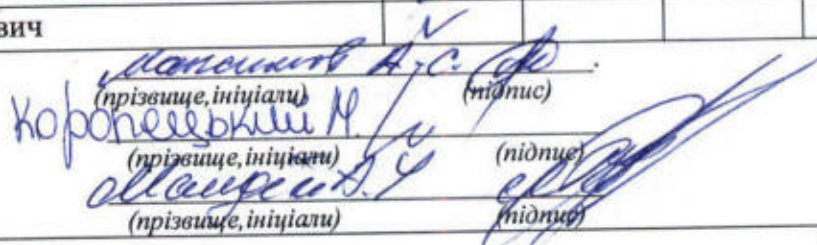 вич
Максимов А.С.
(прізвище, ініціали) (підпис)
Коропецький М.
(прізвище, ініціали) (підпис)
(прізвище, ініціали) (підпис)